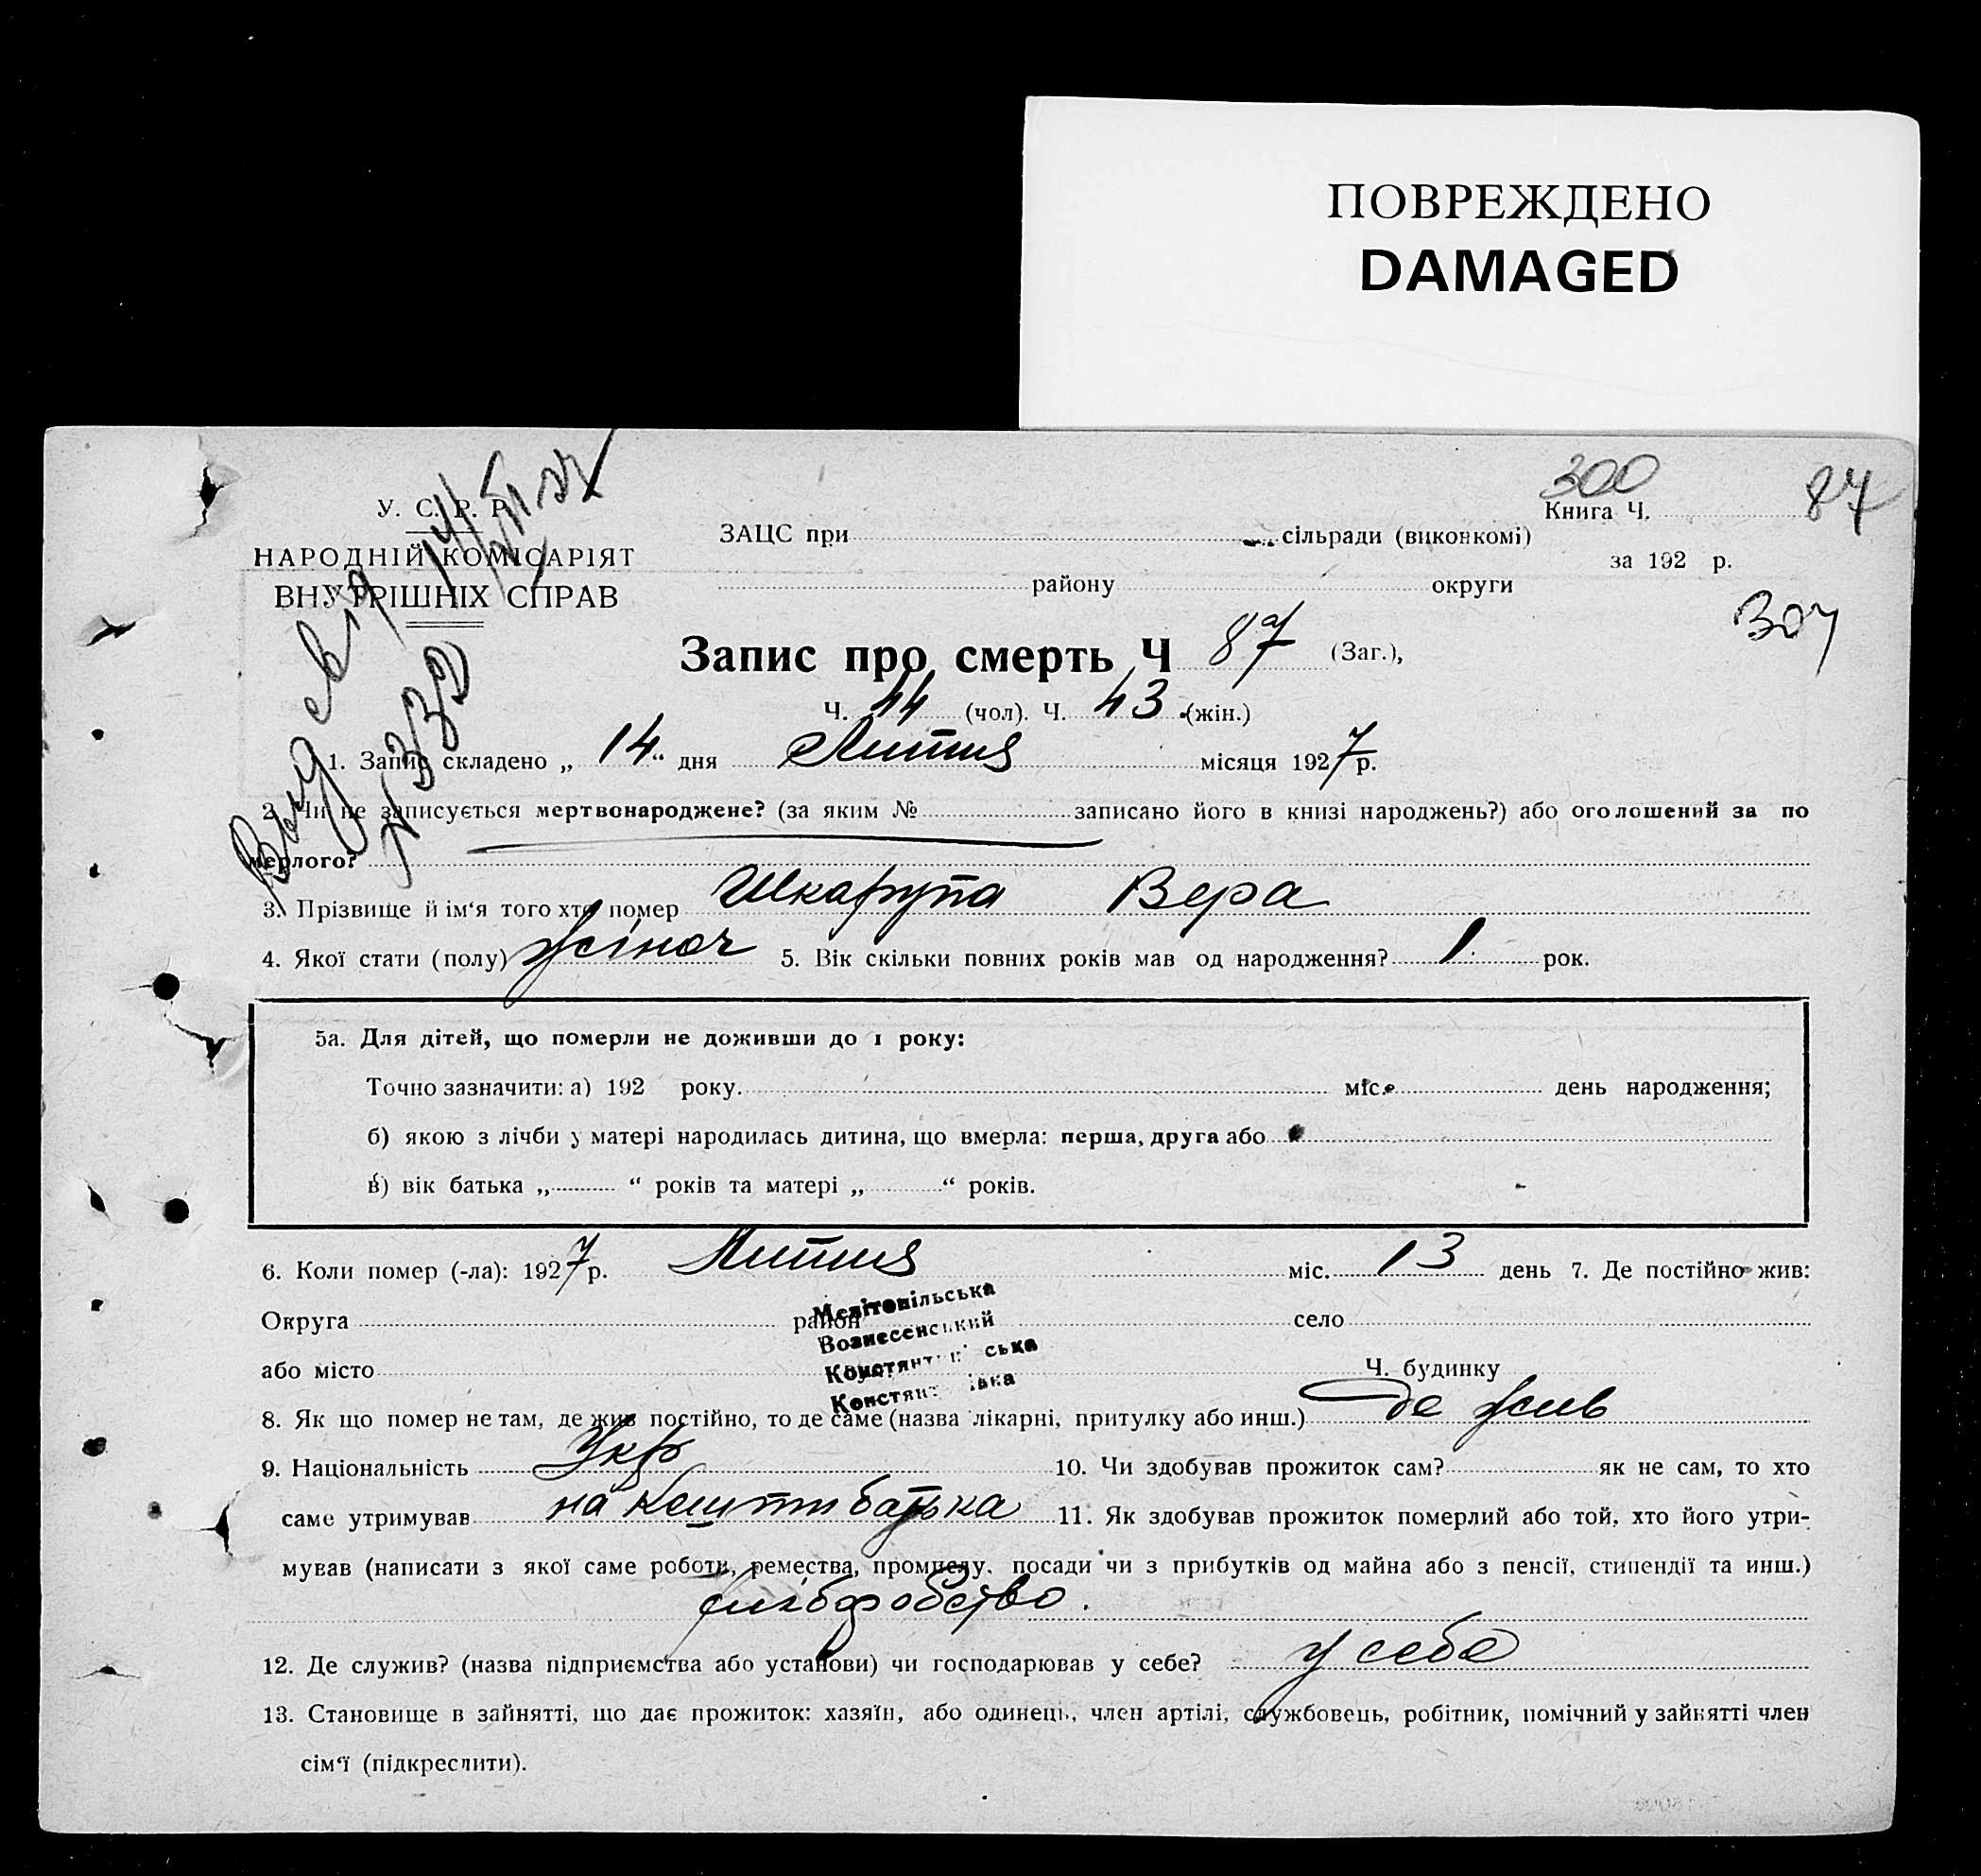 ПОВРЕЖДЕНО
DAMAGED
300
87
У. С. Р. Р.
НАРОДНІЙ КОМІСАРІЯТ
ВНУТРІШНІХ СПРАВ
ЗАЦС при сільради (виконкомі)
району округи
Книга Ч.
за 192 р.
307
Запис про смерть Ч 87 (Заг.),
Ч. 44 (чол). Ч. 43 (жін.)
1. Запис складено „ 14 “ дня Липня місяця 1927 р.
2. Чи не записується мертвонароджене? (за яким № записано його в книзі народжень?) або оголошений за по
мерлого?
3. Прізвище й ім‘я того хто помер Шкарупа Вера
4. Якої стати (полу) жіноч 5. Вік скільки повних років мав од народження? 1 рок.
5а. Для дітей, що померли не доживши до 1 року:
Точно зазначити: а) 192 року. міс. день народження;
б) якою з лічби у матері народилась дитина, що вмерла: перша, друга або
в) вік батька „ “ років та матері „ “ років.
6. Коли помер (-ла): 1927 р. Липня міс. 13 день 7. Де постійно жив:
Округа район село
Мелітопільська
Вознесенський
Констянтинівська
Констянтинівка
або місто Ч. будинку
8. Як що помер не там, де жив постійно, то де саме (назва лікарні, притулку або инш.) де жив
9. Національність Укр 10. Чи здобував прожиток сам? як не сам, то хто
саме утримував на кошти батька 11. Як здобував прожиток померлий або той, хто його утри-
мував (написати з якої саме роботи, ремества, промислу, посади чи з прибутків од майна або з пенсії, стипендії та инш.)
хліборобство.
12. Де служив? (назва підприємства або установи) чи господарював у себе? у себе
13. Становище в зайнятті, що дає прожиток: хазяїн, або одинець, член артілі, службовець, робітник, помічний у зайнятті член
сім‘ї (підкреслити).